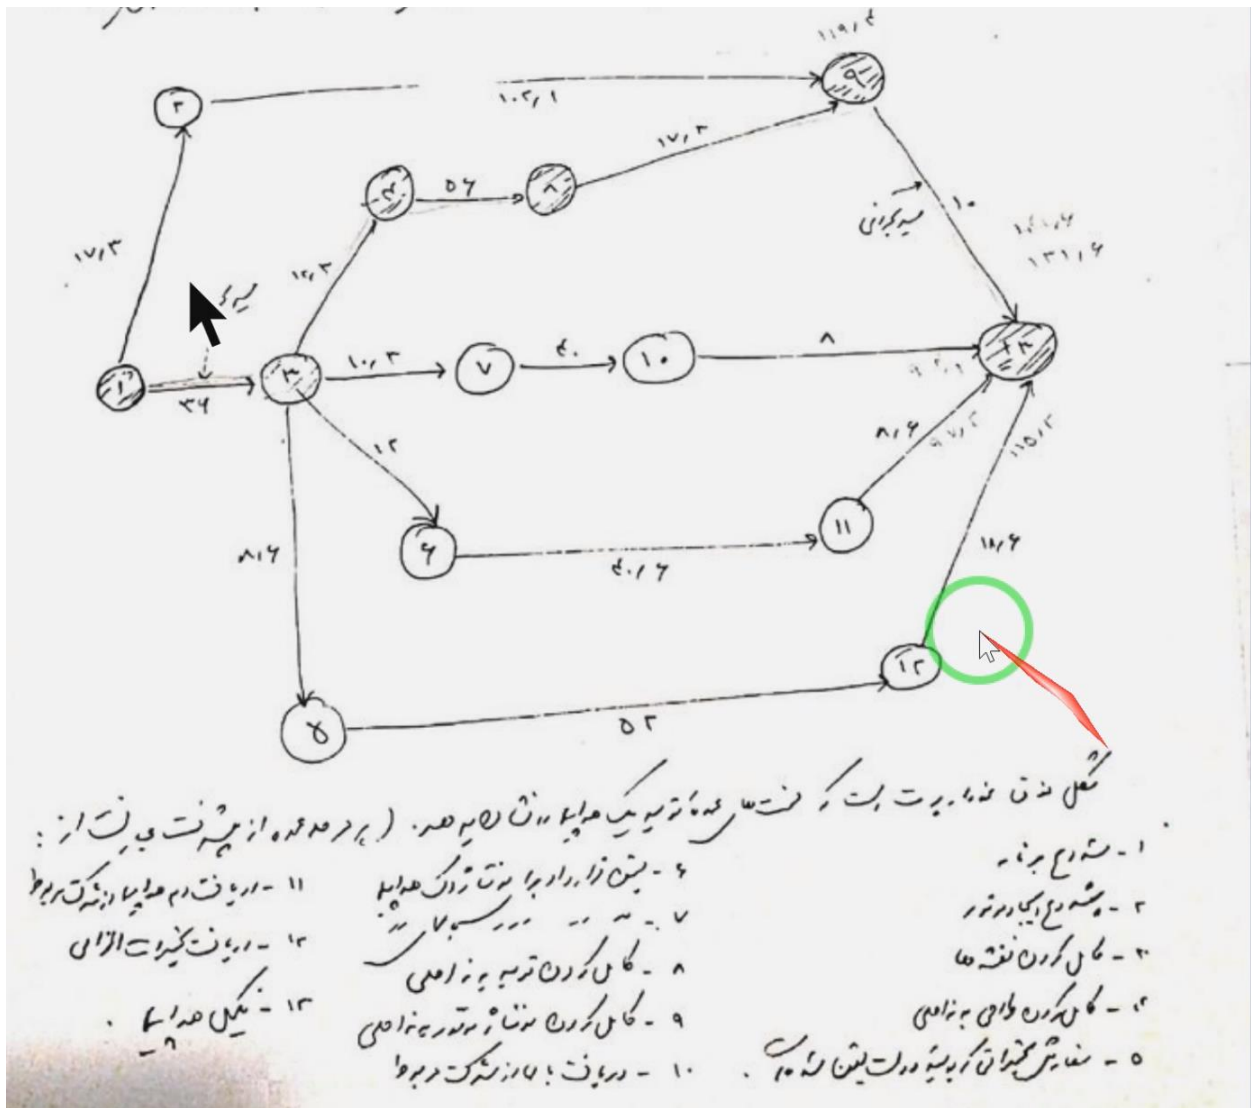 ۱۱۹٫۴
۹
۲
۱۰۲٫۱
۱۷٫۲
۴
۵۶
۸
۱۰
مسیر بحرانی
۱۷٫۳
۱۲٫۳
۱۳۱٫۶
۱
۳۶
۳
۱۰٫۳
۷
۴۰
۱۰
۸
۱۳
۱۲
۸٫۶
۹۷٫۲
۱۱۵٫۲
۸٫۶
۶
۴۰٫۶
۱۱
۱۸٫۶
۵
۵۲
۱۲
شکل فوق نمودار پرت است که قسمت‌های عمده تهیه یک هواپیما را نشان می‌دهد. ( از پیشرفت عبارت است از :
۱ - شروع برنامه
۲ - شروع ایجاد موتور
۳ - کامل کردن نقشه‌ها
۴ - کامل کردن طراحی بدنه اصلی
۵ - سفارش تجهیزاتی که بوسیله دولت تعیین شده
۶ - بستن قرارداد برای مونتاژ دم هواپیما
۷ - " " " " بالهای
۸ - کامل کردن تهیه بدنه اصلی
۹ - کامل کردن مونتاژ موتور بدنه اصلی
۱۰ - دریافت بالها از شرکت مربوط
۱۱ - دریافت دم هواپیما از شرکت مربوط
۱۲ - دریافت تجهیزات الزامی
۱۳ - تکمیل هواپیما .